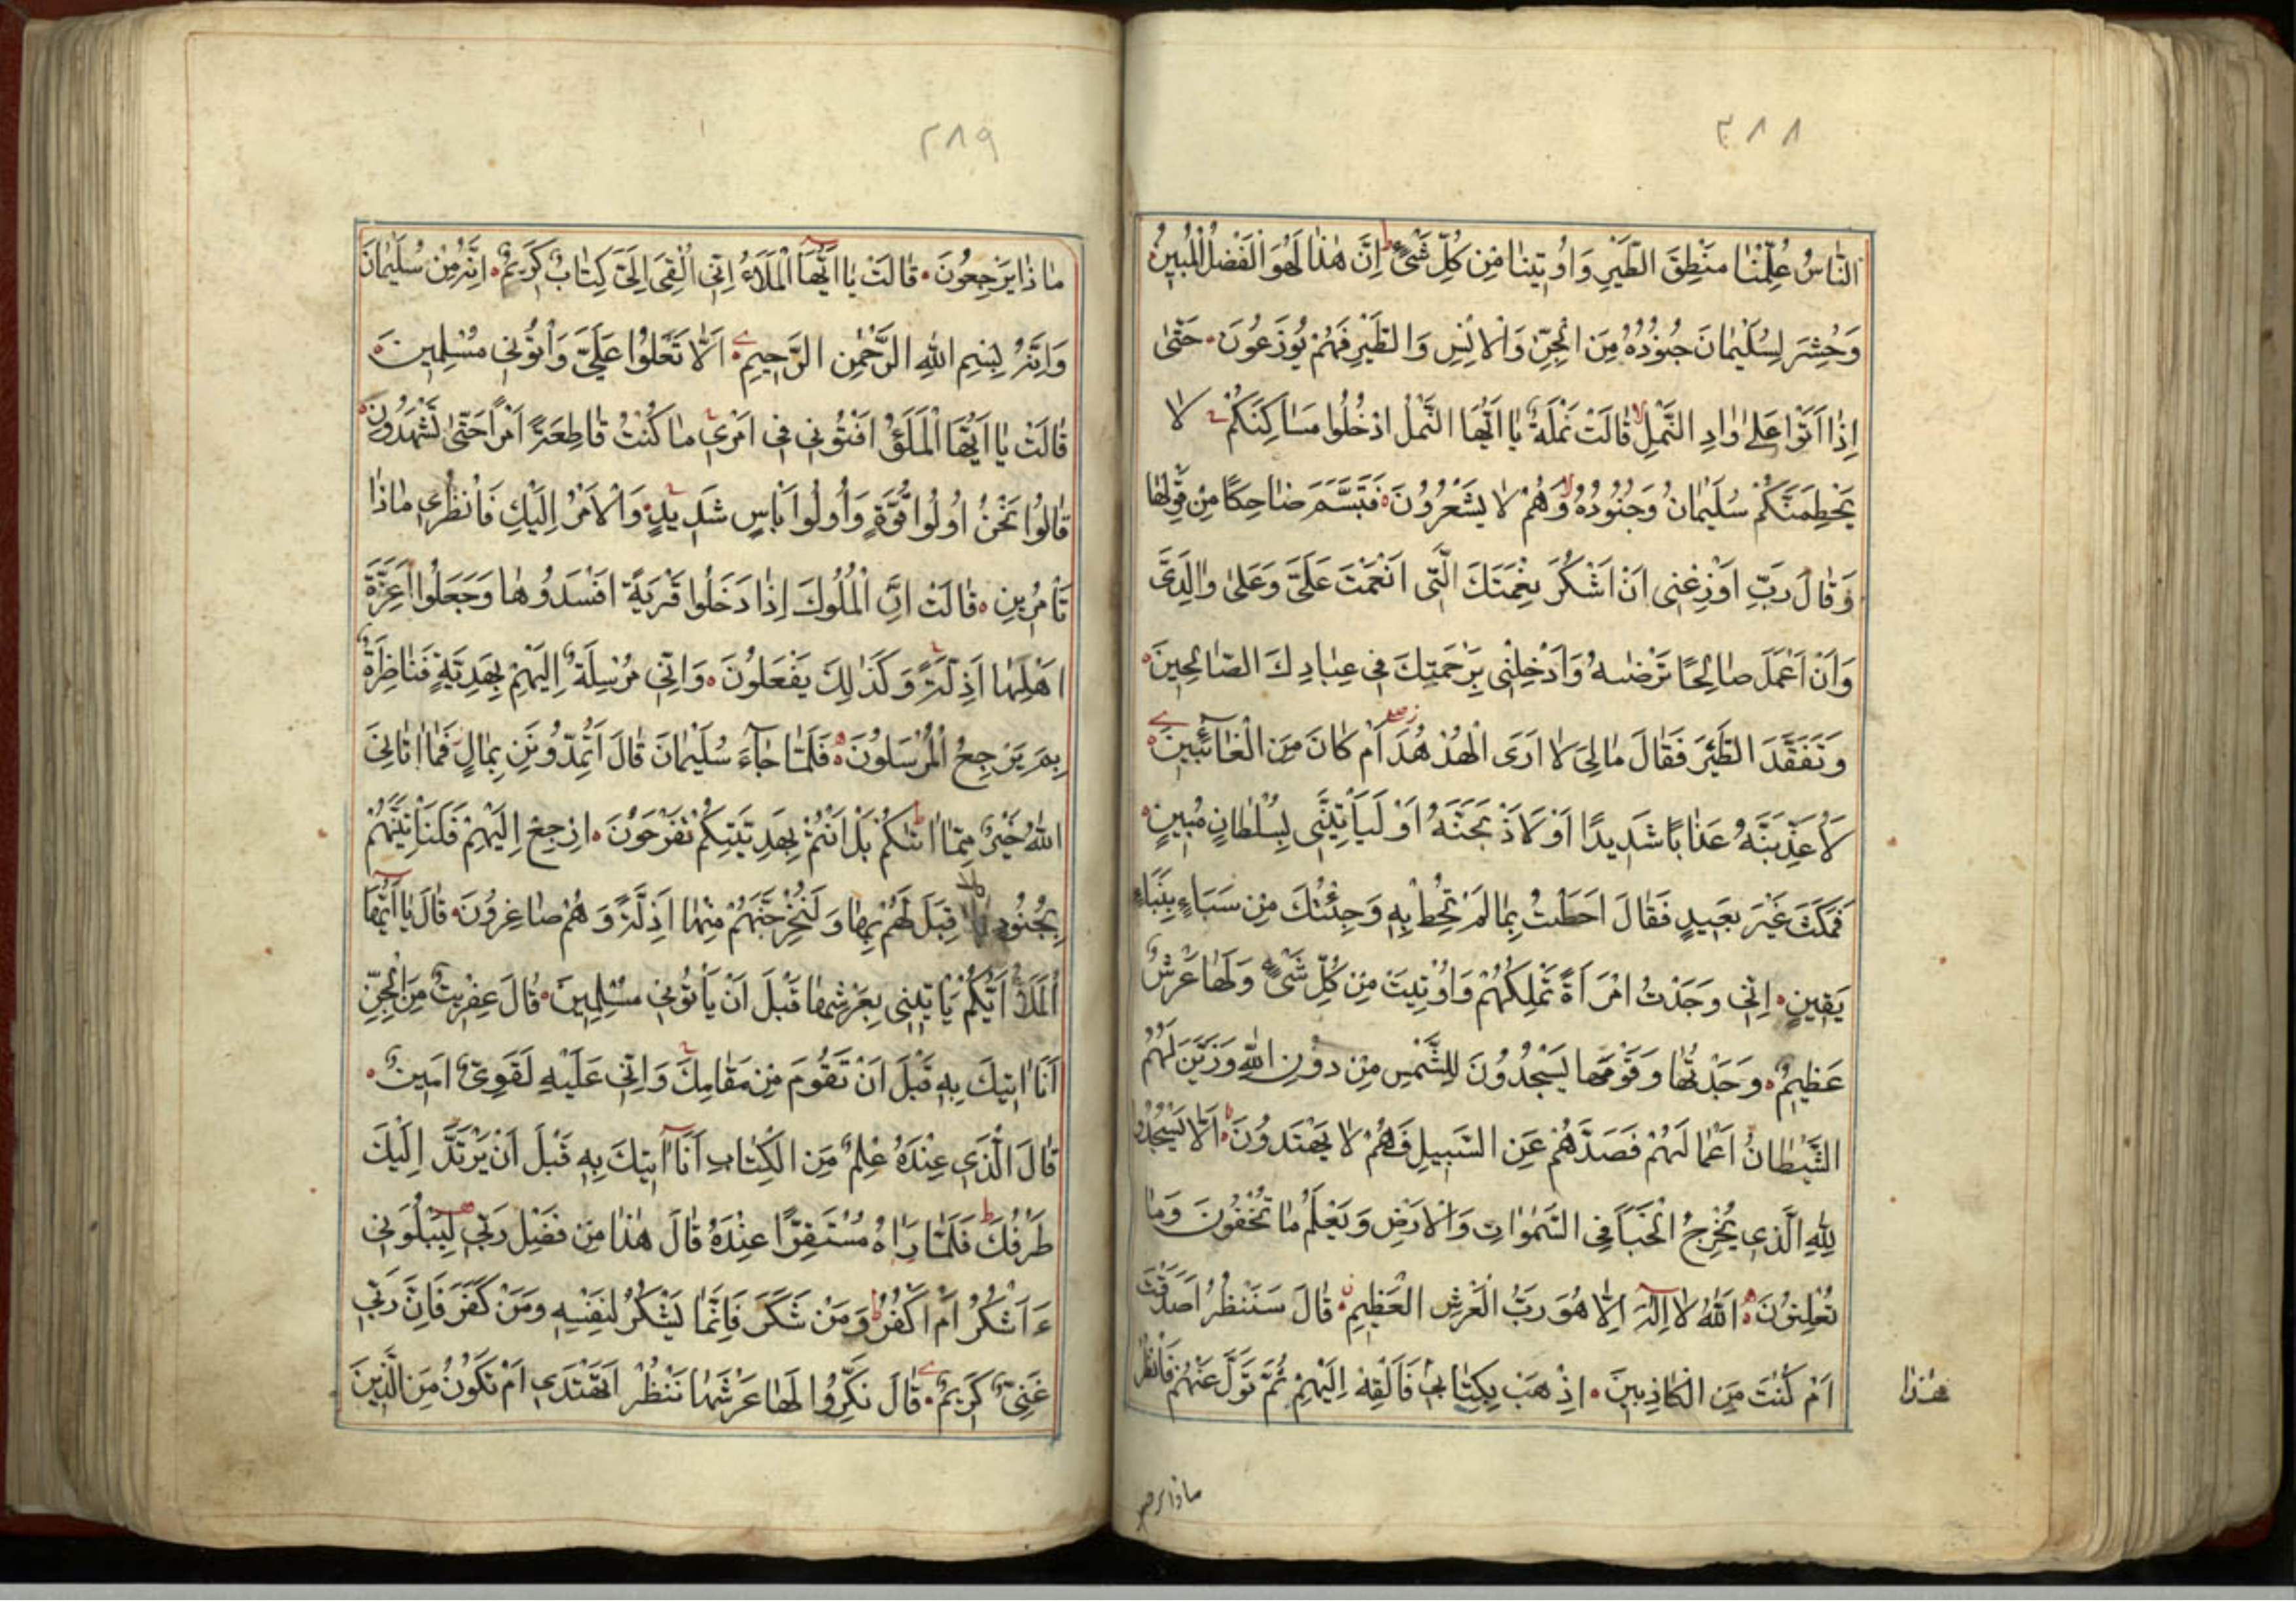 ٣٨٨
النّاسُ عُلِّمْنا مَنْطِقَ الطَّيْرِ وَاُوتينا مِنْ كُلِّ شَىْءٍ ط اِنَّ هٰذا لَهُوَ الْفَضْلُ الْمُبينُ
وَحُشِرَ لِسُلَيْمانَ جُنُودُهُ مِنَ الْجِنِّ وَالْاِنْسِ وَالطَّيْرِ فَهُمْ يُوزَعُونَ حَتّىٰ
اِذا اَتَوْا عَلىٰ وادِ النَّمْلِ لا قالَتْ نَمْلَةٌ يا اَيُّهَا النَّمْلُ ادْخُلُوا مَساكِنَكُمْ لا
يَحْطِمَنَّكُمْ سُلَيْمانُ وَجُنُودُهُ لا وَهُمْ لا يَشْعُرُونَ فَتَبَسَّمَ ضاحِكًا مِنْ قَوْلِها
وَقالَ رَبِّ اَوْزِعْنى اَنْ اَشْكُرَ نِعْمَتَكَ الَّتى اَنْعَمْتَ عَلَىَّ وَعَلىٰ والِدَىَّ
وَاَنْ اَعْمَلَ صالِحًا تَرْضٰيهُ وَاَدْخِلْنى بِرَحْمَتِكَ فى عِبادِكَ الصّالِحينَ
وَتَفَقَّدَ الطَّيْرَ فَقالَ مالِىَ لا اَرَى الْهُدْهُدَ اَمْ كانَ مِنَ الْغآئِبينَ
لَاُعَذِّبَنَّهُ عَذابًا شَديدًا اَوْ لَاَذْبَحَنَّهُ اَوْ لَيَأْتِيَنّى بِسُلْطانٍ مُبينٍ
فَمَكَثَ غَيْرَ بَعيدٍ فَقالَ اَحَطْتُ بِما لَمْ تُحِطْ بِهِ وَجِئْتُكَ مِنْ سَبَاءٍ بِنَبَاءٍ
يَقينٍ اِنّى وَجَدْتُ امْرَاَةً تَمْلِكُهُمْ وَاُوتِيَتْ مِنْ كُلِّ شَىْءٍ وَلَها عَرْشٌ
عَظيمٌ وَجَدْتُها وَقَوْمَها يَسْجُدُونَ لِلشَّمْسِ مِنْ دُونِ اللهِ وَزَيَّنَ لَهُمُ
الشَّيْطانُ اَعْمالَهُمْ فَصَدَّهُمْ عَنِ السَّبيلِ فَهُمْ لا يَهْتَدُونَ اَلّا يَسْجُدُوا
لِلّٰهِ الَّذى يُخْرِجُ الْخَبْاَ فِى السَّمٰواتِ وَالْاَرْضِ وَيَعْلَمُ ما تُخْفُونَ وَما
تُعْلِنُونَ اَللهُ لا اِلٰهَ اِلّا هُوَ رَبُّ الْعَرْشِ الْعَظيمِ قالَ سَنَنْظُرُ اَصَدَقْتَ
اَمْ كُنْتَ مِنَ الْكاذِبينَ اِذْهَبْ بِكِتابى فَاَلْقِهْ اِلَيْهِمْ ثُمَّ تَوَلَّ عَنْهُمْ فَانْظُرْ
هٰذا
٣٨٩
ماذا يَرْجِعُونَ قالَتْ يا اَيُّهَا الْمَلَاءُ اِنّى اُلْقِىَ اِلَىَّ كِتابٌ كَريمٌ اِنَّهُ مِنْ سُلَيْمانَ
وَاِنَّهُ بِسْمِ اللهِ الرَّحْمٰنِ الرَّحيمِ اَلّا تَعْلُوا عَلَىَّ وَأْتُونى مُسْلِمينَ
قالَتْ يا اَيُّهَا الْمَلَؤُ اَفْتُونى فى اَمْرى ما كُنْتُ قاطِعَةً اَمْرًا حَتّىٰ تَشْهَدُونِ
قالُوا نَحْنُ اُولُوا قُوَّةٍ وَاُولُوا بَأْسٍ شَديدٍ وَالْاَمْرُ اِلَيْكِ فَانْظُرى ماذا
تَأْمُرينَ قالَتْ اِنَّ الْمُلُوكَ اِذا دَخَلُوا قَرْيَةً اَفْسَدُوها وَجَعَلُوا اَعِزَّةَ
اَهْلِها اَذِلَّةً وَكَذٰلِكَ يَفْعَلُونَ وَاِنّى مُرْسِلَةٌ اِلَيْهِمْ بِهَدِيَّةٍ فَناظِرَةٌ
بِمَ يَرْجِعُ الْمُرْسَلُونَ فَلَمّا جآءَ سُلَيْمانَ قالَ اَتُمِدُّونَنِ بِمالٍ فَما اٰتانِىَ
اللهُ خَيْرٌ مِمّا اٰتٰيكُمْ بَلْ اَنْتُمْ بِهَدِيَّتِكُمْ تَفْرَحُونَ اِرْجِعْ اِلَيْهِمْ فَلَنَأْتِيَنَّهُمْ
بِجُنُودٍ لا قِبَلَ لَهُمْ بِها وَلَنُخْرِجَنَّهُمْ مِنْها اَذِلَّةً وَهُمْ صاغِرُونَ قالَ يا اَيُّهَا
الْمَلَؤُ اَيُّكُمْ يَأْتينى بِعَرْشِها قَبْلَ اَنْ يَأْتُونى مُسْلِمينَ قالَ عِفْريتٌ مِنَ الْجِنِّ
اَنَا اٰتيكَ بِهِ قَبْلَ اَنْ تَقُومَ مِنْ مَقامِكَ وَاِنّى عَلَيْهِ لَقَوِىٌّ اَمينٌ
قالَ الَّذى عِنْدَهُ عِلْمٌ مِنَ الْكِتابِ اَنَا اٰتيكَ بِهِ قَبْلَ اَنْ يَرْتَدَّ اِلَيْكَ
طَرْفُكَ ط فَلَمّا رَاٰهُ مُسْتَقِرًّا عِنْدَهُ قالَ هٰذا مِنْ فَضْلِ رَبّى لِيَبْلُوَنى
ءَاَشْكُرُ اَمْ اَكْفُرُ ط وَمَنْ شَكَرَ فَاِنَّما يَشْكُرُ لِنَفْسِهِ وَمَنْ كَفَرَ فَاِنَّ رَبّى
غَنِىٌّ كَريمٌ قالَ نَكِّرُوا لَها عَرْشَها نَنْظُرْ اَتَهْتَدى اَمْ تَكُونُ مِنَ الَّذينَ